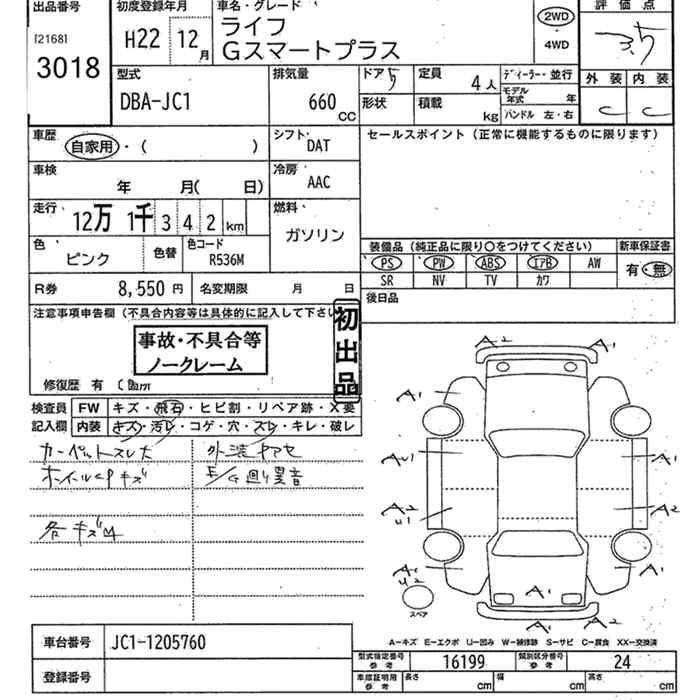 出品番号
[2168]
3018
初度登録年月
H22 12月
車名・グレード
ライフ
Gスマートプラス
2WD
4WD
評価点
3.5
外装 内装
C C
型式
DBA-JC1
排気量
660
CC
ドア 5
定員
4人
形状
積載
kg
ディーラー・並行
モデル年式 年
ハンドル 左・右
車歴
自家用・( )
シフト
DAT
車検
年 月( 日)
冷房
AAC
走行
12万 1千 3 4 2 km
燃料
ガソリン
色
ピンク
色替
色コード
R536M
R券 8,550円
名変期限 月 日
セールスポイント(正常に機能するものに限ります)
装備品(純正品に限り○をつけてください)
新車保証書
PS PW ABS エアB AW
SR NV TV カワ
有・無
後日品
注意事項申告欄(不具合内容等は具体的に記入して下さい
事故・不具合等
ノークレーム
初出品
修復歴 有
検査員
記入欄
FW キズ・飛石・ヒビ割・リペア跡・X要
内装 キズ・汚レ・コゲ・穴・スレ・キレ・破レ
カーペットスレ大
外装ヤケ
キズ
各キズ凹
A2 A1
A1 A1
AU1 A1
A2 U1 A2
A1 U2 A1
A1
A1
スペア
A-キズ E-エクボ U-凹み W-補修跡 S-サビ C-腐食 XX-交換済
車台番号 JC1-1205760
登録番号
型式指定番号 参考 16199
類別区分番号 参考 24
車庫証明用 参考 長さ cm 幅 cm 高さ cm